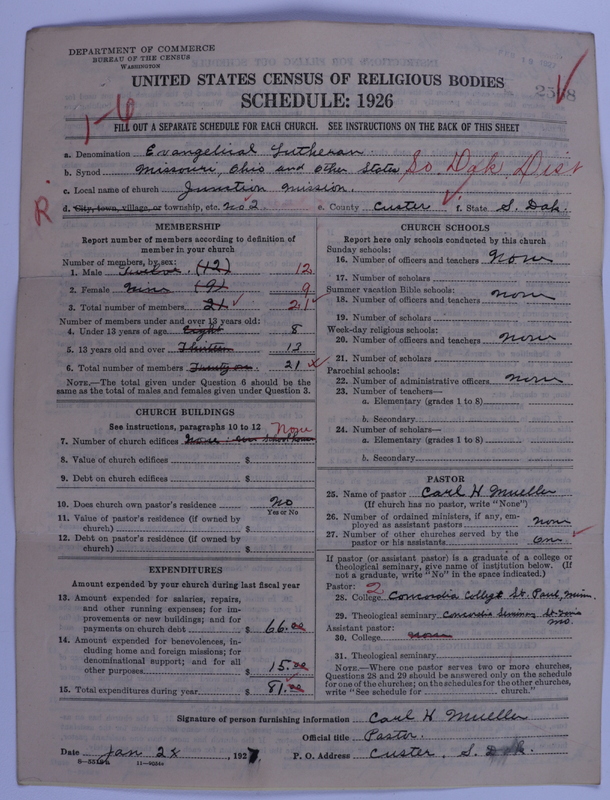 DEPARTMENT OF COMMERCE
BUREAU OF THE CENSUS
WASHINGTON
UNITED STATES CENSUS OF RELIGIOUS BODIES
SCHEDULE: 1926
1-6
FILL OUT A SEPARATE SCHEDULE FOR EACH CHURCH. SEE INSTRUCTIONS ON THE BACK OF THIS SHEET
a. Denomination Evangelical Lutheran
b. Synod Missouri, Ohio and other States So. Dak Dist
c. Local name of church Junction Mission.
R.
d. City, town, village, or township, etc. No 2. e. County Custer f. State S. Dak.
MEMBERSHIP
Report number of members according to definition of member in your church
Number of members, by sex:
1. Male Twelve. (12) 12
2. Female Nine (9) 9
3. Total number of members 21 21
Number of members under and over 13 years old:
4. Under 13 years of age Eight 8
5. 13 years old and over Thirteen 13
6. Total number of members Twenty one 21
NOTE.—The total given under Question 6 should be the
same as the total of males and females given under Question 3.
CHURCH BUILDINGS
See instructions, paragraphs 10 to 12 None
7. Number of church edifices None: Schoolhouse
8. Value of church edifices $
9. Debt on church edifices $
10. Does church own pastor's residence No
Yes or No
11. Value of pastor's residence (if owned by
church) $
12. Debt on pastor's residence (if owned by
church) $
EXPENDITURES
Amount expended by your church during last fiscal year
13. Amount expended for salaries, repairs,
and other running expenses; for im-
provements or new buildings; and for
payments on church debt $ 66.00
14. Amount expended for benevolences, in-
cluding home and foreign missions; for
denominational support; and for all
other purposes $ 15.00
15. Total expenditures during year $ 81.00
CHURCH SCHOOLS
Report here only schools conducted by this church
Sunday schools:
16. Number of officers and teachers None
17. Number of scholars
Summer vacation Bible schools:
18. Number of officers and teachers None
19. Number of scholars
Week-day religious schools:
20. Number of officers and teachers None
21. Number of scholars
Parochial schools:
22. Number of administrative officers None
23. Number of teachers—
a. Elementary (grades 1 to 8)
b. Secondary
24. Number of scholars—
a. Elementary (grades 1 to 8)
b. Secondary
PASTOR
25. Name of pastor Carl H Mueller
(If church has no pastor, write "None")
26. Number of ordained ministers, if any, em-
ployed as assistant pastors None
27. Number of other churches served by the
pastor or his assistants
If pastor (or assistant pastor) is a graduate of a college or
theological seminary, give name of institution below. (If
not a graduate, write "No" in the space indicated.)
Pastor: 2
28. College Concordia College St. Paul, Minn.
29. Theological seminary Concordia Seminary St Louis
Mo.
Assistant pastor:
30. College None
31. Theological seminary
NOTE.—Where one pastor serves two or more churches,
Questions 28 and 29 should be answered only on the schedule
for one of the churches; on the schedules for the other churches,
write "See schedule for church."
Signature of person furnishing information Carl H Mueller
Official title Pastor.
Date Jan 28, 1927. P. O. Address Custer, S. Dak.